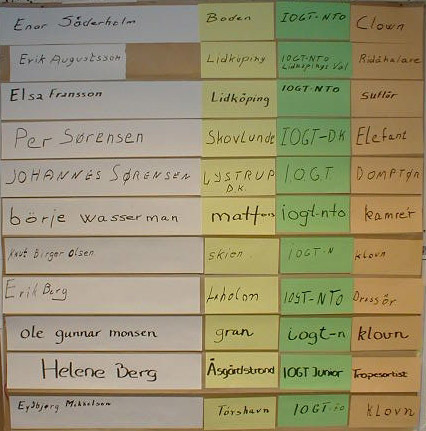 Enar Söderholm Boden IOGT-NTO Clown
Erik Augustsson Lidköping IOGT-NTO Lidköpings Val Ridåhalare
Elsa Fransson Lidköping IOGT-NTO Sufflör
Per Sørensen Skovlunde IOGT-DK Elefant
JOHANNES SØRENSEN LYSTRUP DK IOGT DOMPTØR
börje wasserman iogt-nto kamrér
Knut Birger Olsen skien IOGT-N klovn
Erik Berg IOGT-NTO Dressör
ole gunnar monsen gran iogt-n klovn
Helene Berg Åsgårdstrand IOGT Junior Trapesartist
Eyðbjørg Mikkelsen Tórshavn KLOVN